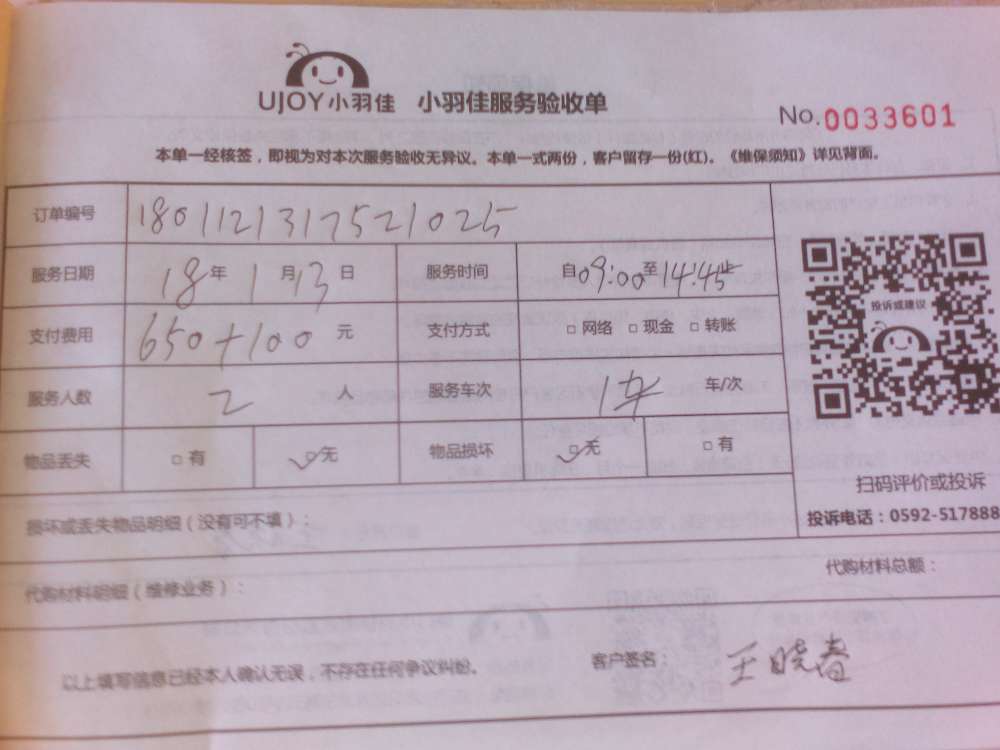 UJOY小羽佳 小羽佳服务验收单
No.0033601
本单一经核签，即视为对本次服务验收无异议。本单一式两份，客户留存一份(红)。《维保须知》详见背面。
订单编号 1801121317521025
服务日期 18年 1月13日 服务时间 自09:00至14:45止
投诉或建议
支付费用 650+100 元 支付方式 □网络 □现金 □转账
服务人数 2 人 服务车次 1车 车/次
物品丢失 □有 □无 物品损坏 □无 □有
扫码评价或投诉
损坏或丢失物品明细（没有可不填）：
投诉电话：0592-517888
代购材料明细（维修业务）：
代购材料总额：
以上填写信息已经本人确认无误，不存在任何争议纠纷。 客户签名： 王晓春